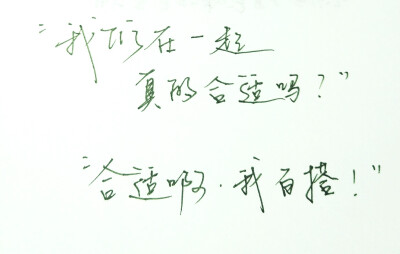 “我们在一起
真的合适吗？”
“合适啊.我百搭！”